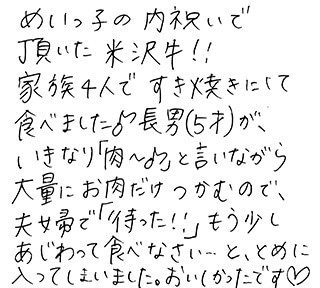 めいっ子の内祝いで
頂いた米沢牛!!
家族4人ですき焼きにして
食べました♪長男(5才)が、
いきなり「肉〜♪」と言いながら
大量にお肉だけつかむので、
夫婦で「待った!!」もう少し
あじわって食べなさい…と、とめに
入ってしまいました。おいしかったです♡